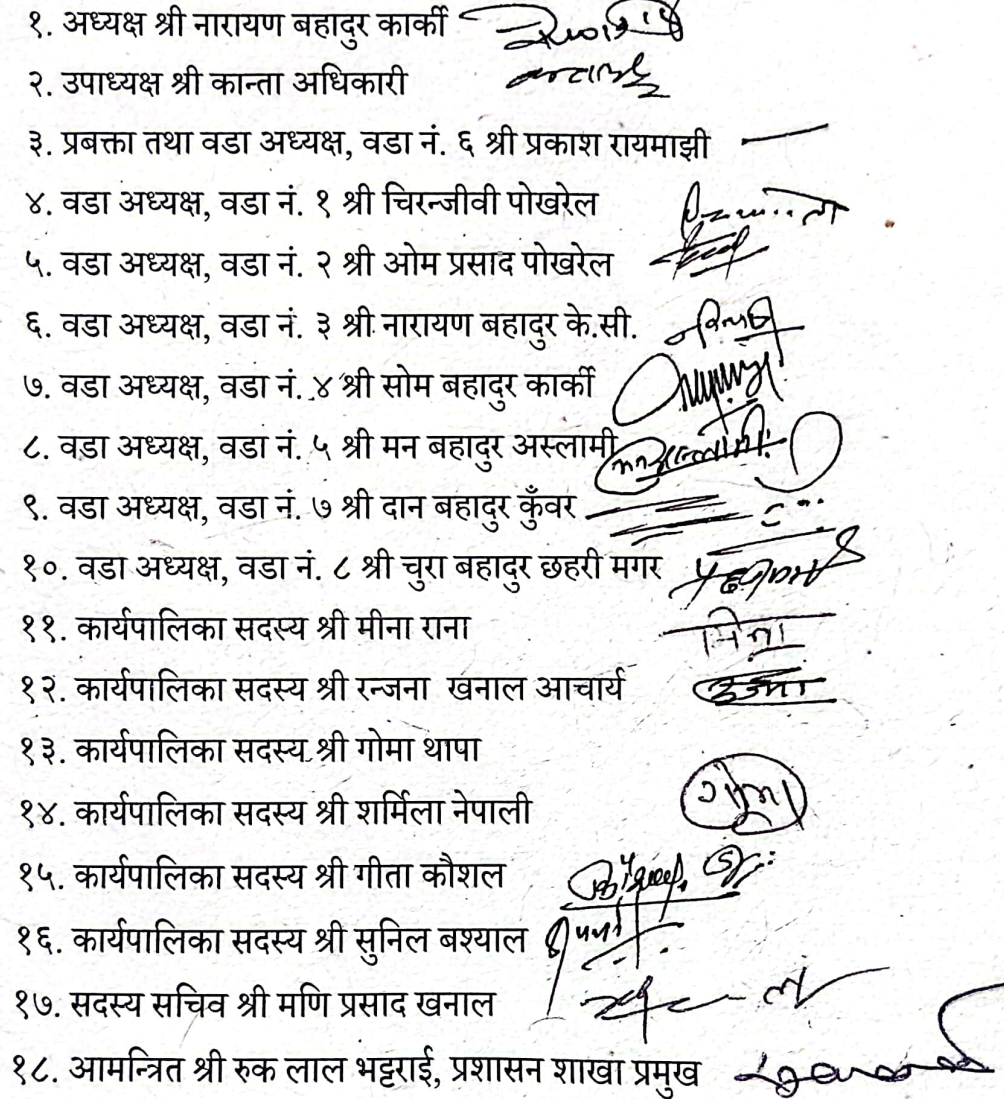 १. अध्यक्ष श्री नारायण बहादुर कार्की
२. उपाध्यक्ष श्री कान्ता अधिकारी
३. प्रबक्ता तथा वडा अध्यक्ष, वडा नं. ६ श्री प्रकाश रायमाझी
४. वडा अध्यक्ष, वडा नं. १ श्री चिरन्जीवी पोखरेल
५. वडा अध्यक्ष, वडा नं. २ श्री ओम प्रसाद पोखरेल
६. वडा अध्यक्ष, वडा नं. ३ श्री नारायण बहादुर के.सी.
७. वडा अध्यक्ष, वडा नं. ४ श्री सोम बहादुर कार्की
८. वडा अध्यक्ष, वडा नं. ५ श्री मन बहादुर अस्लामी
९. वडा अध्यक्ष, वडा नं. ७ श्री दान बहादुर कुँवर
१०. वडा अध्यक्ष, वडा नं. ८ श्री चुरा बहादुर छहरी मगर
११. कार्यपालिका सदस्य श्री मीना राना मिना
१२. कार्यपालिका सदस्य श्री रन्जना खनाल आचार्य
१३. कार्यपालिका सदस्य श्री गोमा थापा
१४. कार्यपालिका सदस्य श्री शर्मिला नेपाली गोमा
१५. कार्यपालिका सदस्य श्री गीता कौशल
१६. कार्यपालिका सदस्य श्री सुनिल बश्याल
१७. सदस्य सचिव श्री मणि प्रसाद खनाल
१८. आमन्त्रित श्री रुक लाल भट्टराई, प्रशासन शाखा प्रमुख